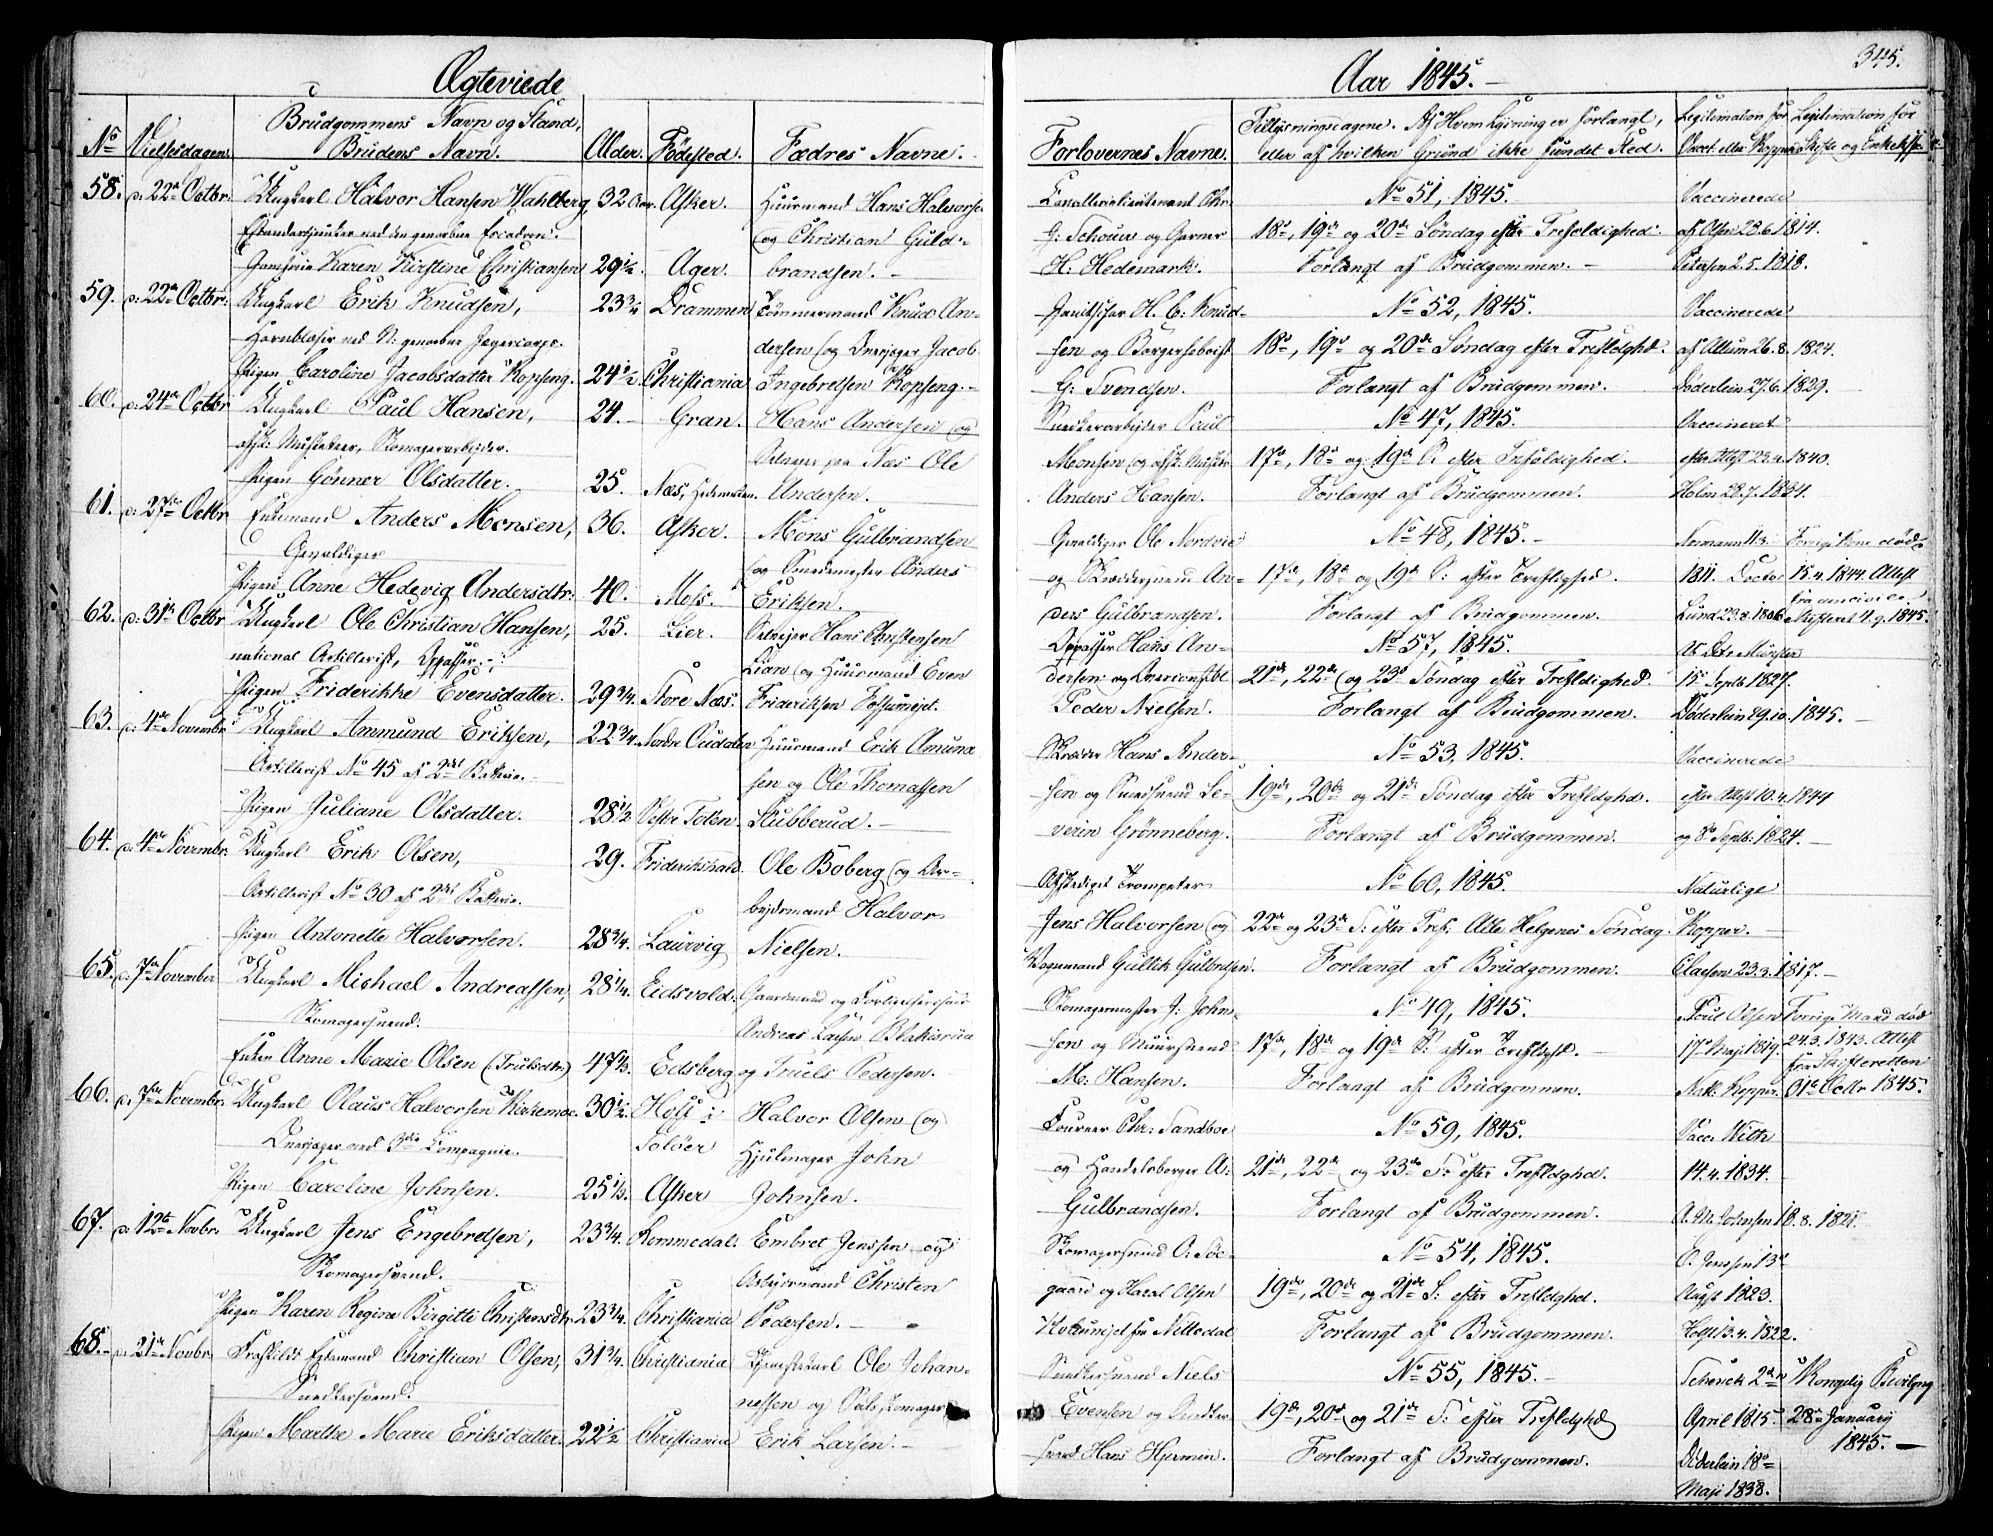 Ægteviede
No
Vielsesdagen.
Brudgommens Navn og Stand,
Brudens Navn.
Alder.
Fødested.
Fædres Navne.
58. d: 22de Octbr. Ungkarl Halvor Hansen Wahlberg, 32 Aar. Asker. Huusmand Hans Halvorsen
ved den geworbne Escadron. og Christian Guld-
Karen Kirstine Christiansen 29½. Ager. brandsen. -
59. d: 22de Octbr: Ungkarl Erik Knudsen, 23¾ Drammen Tømmermand Knud An-
Hornblæser ved N: geworbne Jægercorps. dersen og Overjæger Jacob
Pigen Caroline Jacobsdatter Kopseng. 24½ Christiania Ingebretsen Kopseng. -
60. d: 24de Octbr Ungkarl Paul Hansen, 24. Gran. Hans Andersen og
afsk: Musketeer, Skomagerarbeider. Selveier paa Næs Ole
Pigen Gønner Olsdatter. 25. Næs, Hedemarken. Andersen.
61. d: 27de Octbr Enkemand Anders Monsen, 36. Asker. Mons Gulbrandsen
Gevaldiger og Smedemester Anders
Pigen Anne Hedevig Andersdtr: 40. Moss. Eriksen.
62. d: 31te Octbr Ungkarl Ole Christian Hansen, 25. Lier. Selveier Hans Christensen
national Artillerist, Oppasser. Lian og Huusmand Even
Pigen Friderikke Evensdatter. 29¾. Store Næs. Frideriksen Fossumeiet.
63. d: 4de Novembr Ungkarl Ammund Eriksen, 22¾. Nordre Oudalen Huusmand Erik Amund
Artillerist No 45 af 2det Batterie. sen og Ole Thomassen
Pigen Juliane Olsdatter. 28½ Vestre Toten. Stubberud. -
64. d: 4de Novembr: Ungkarl Erik Olsen, 29. Friderikshald. Ole Boberg og Ar-
Artillerist No 30 af 2det Batterie. beidsmand Halvor
Pigen Antonette Halvorsen. 28¾. Laurvig Nielsen.
65. d: 7de November Ungkarl Michael Andreassen, 28¼. Eidsvold. Gaardmand og
Skomagersvend. Andreas Larsen
Enken Anne Marie Olsen (Trulsdtr) 47⅓. Edsberg og Truels Pedersen.
66. d: 7de Novembr: Ungkarl Olaus Halvorsen Kirkemoe. 30½. Hof i Halvor Olsen og
Overjæger ved 3die Compagnie. Soløer Hjulmager John
Pigen Caroline Johnsen. 25⅓. Asker Johnsen.
67. d: 12te Novbr. Ungkarl Jens Engebretsen, 23¾. Rommedal. Embret Jenssen og
Skomagersvend. Arbeidsmand Christen
Pigen Karen Regine Birgitte Christensdtr. 23¾. Christiania Pedersen. -
68. d: 21de Novbr. Fraskildt Egtemand Christian Olsen, 31¾. Christiania Ole Johan-
Snedkersvend. nessen og Skomager
Pigen Marthe Marie Eriksdatter. 22½ Christiania Erik Larsen. -
345.
Aar 1845. -
Forlovernes Navne.
Tillysningsdagene. Af Hvem Lysning er forlangt,
eller af hvilken Grund ikke fundet Sted.
Legitimation for
Vacc. eller Kopper
Legitimation for
Skifte og Enkekasse
Cavallerielieutenant Chr. No 51, 1845. Vaccinerede
G: Schouw og Garver 18de, 19de og 20de Søndag efter Trefoldighed. af Olsen 23.6.1814.
H: Hedemark. Forlangt af Brudgommen. - Petersen 2.5.1818.
Janitschar H. C: Knud- No 52, 1845. Vaccinerede
sen og Borger 18de, 19de og 20de Søndag efter Trefldghd. af Altum 26.8.1824.
G: Svendsen. Forlangt af Brudgommen. Døderlein 27.6.1829.
Snedkerarbeider Paul No 47, 1845. Vaccineret
Monsen og afsk: Musktr. 17de, 18de og 19de S. efter Trefoldighed. efter Attest 23.4.1840.
Anders Hansen. Forlangt af Brudgommen. Holm 28.7.1834.
Gevaldiger Ole Nordvie No 48, 1845. - Normann 11.3. Forrige Kone død
og Skræddersvend An- 17de, 18de og 19de S: efter Treflighed. 1811. Doctor 15.4.1844. Attest
ders Gulbrandsen. Forlangt af Brudgommen. Lund 23.8.1806. Skifteret 4.9.1845.
Oppasser Hans An- No 57, 1845.
dersen og 21de, 22de og 23de Søndag efter Trefldighed. 15de Septb 1827.
Peder Nielsen. Forlangt af Brudgommen. Døderlein 29.10.1845. -
Skræder Hans Ander- No 53, 1845. Vaccinerede
sen og Snedkersvend Se- 19de, 20de og 21de Søndag efter Trefldghd. efter Attest 10.4.1844
verin Grønneberg. Forlangt af Brudgommen. og 8de Septb: 1824. -
Afskediget Trompeter No 60, 1845. Naturlige
Jens Halvorsen og 22de og 23de S: efter Tref: Alle Helgenes Søndag. Kopper. -
Vognmand Gullik Gulbrdsen. Forlangt af Brudgommen. Claesen 23.3.1817. -
Skomagermester J: John- No 49, 1845. Poul Olsen Forrige Mand død
sen og Muursvend 17de, 18de og 19de S: efter Treflghd. - 17de Maj 1819. 24.3.1843. Attest
M: Hansen. Forlangt af Brudgommen. Natl. Kopper. fra Skifteretten 31te Octbr 1845.
Foureer Chr: Sandboe No 59, 1845. Vacc. Nith
og Handelsborger A: 21de, 22de og 23de S: efter Trefldghd. 14.4.1834.
Gulbrandsen. Forlangt af Brudgommen. A. M. Johnsen 18.8.1821.
Skomagersvend O: Søe- No 54, 1845. O. Jenssen 13de
gaard og Haral Olsen 19de, 20de og 21de S: efter Trefldghd. August 1823.
fra Nittedal Forlangt af Brudgommen. Hoffst 3.4.1822.
Snedkersvend Niels No 55, 1845. - Schenck 2den Kongelig Bevilgng
Evensen og Snedker 19de, 20de og 21de S: efter Trefldghd April 1815 28de January
svend Hans Hjermin. Forlangt af Brudgommen. Døderlein 18de 1845. -
Maji 1838.